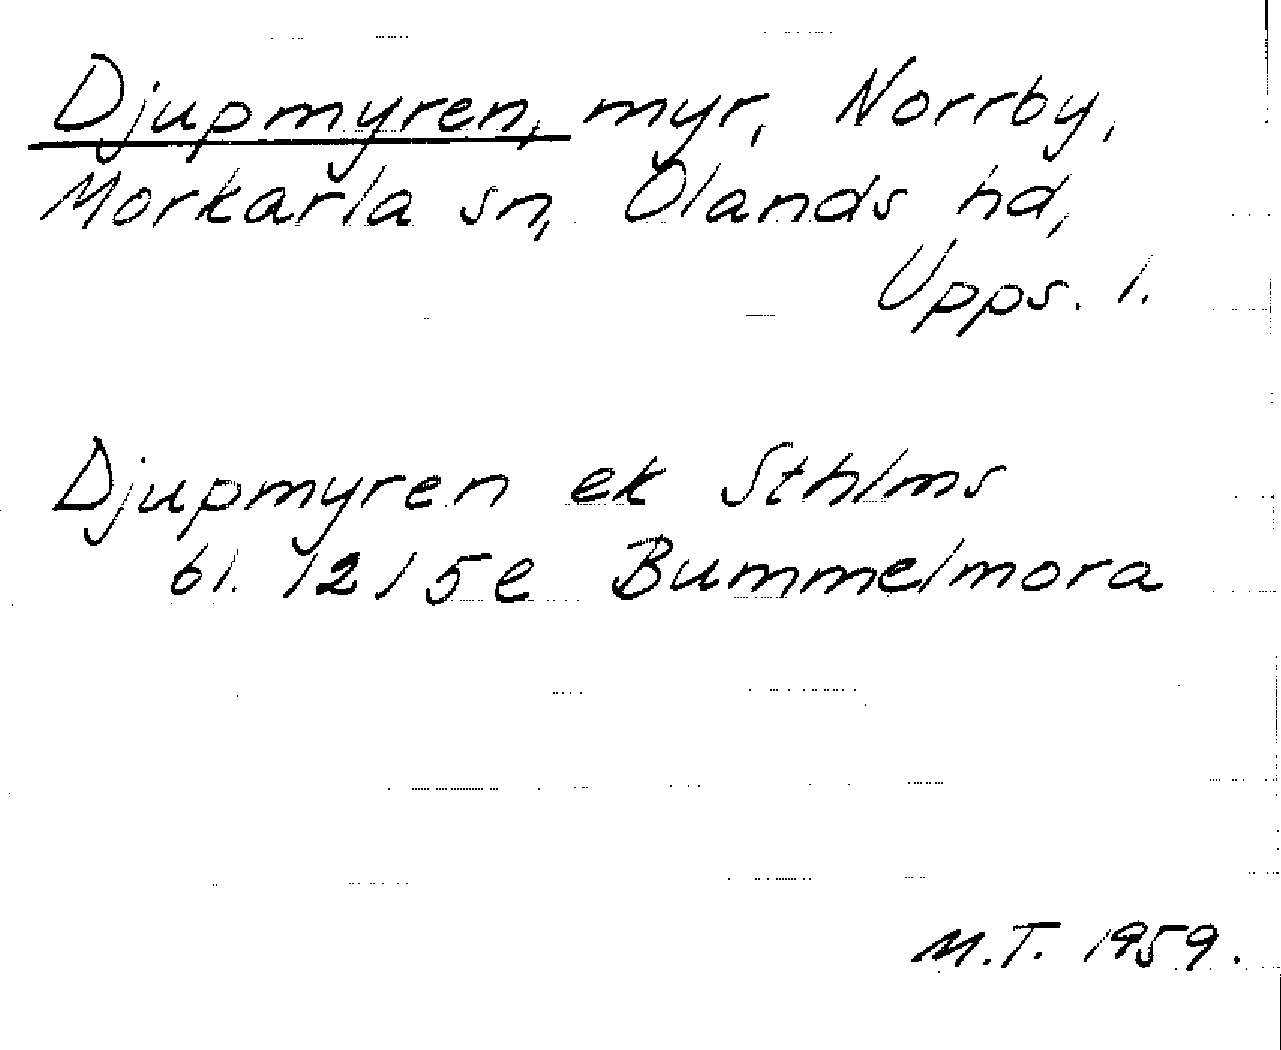 Djupmyren, myr, Norrby,
Morkarla sn, Olands hd,
Upps. l.
Djupmyren ek Sthlms
bl. 12/5e Bummelmora
M.T. 1959.